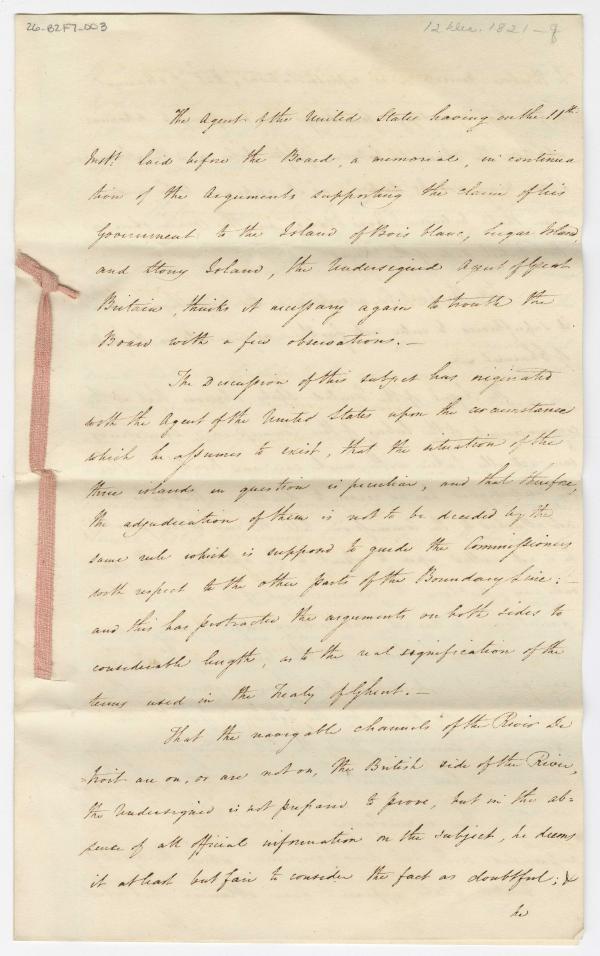 26-B2F7-003
12 Dec. 1821 -
The Agent of the United States having on the 11th
Inst. laid before the Board, a memorial, in continua
tion of the Arguments supporting the claim of his
Government to the Island of Bois blanc, Sugar Island,
and Stony Island, the Undersigned Agent of Great
Britain, thinks it necessary again to trouble the
Board with a few observations. —
The Discussion of this subject has originated
with the Agent of the United States upon the circumstance
which he assumes to exist, that the situation of the
three islands in question is peculiar, and that therefore,
the adjudication of them is not to be decided by the
same rule which is supposed to guide the Commissioners
with respect to the other parts of the Boundary Line: —
and this has protracted the arguments on both sides to
considerable length, as to the real signification of the
terms used in the Treaty of Ghent. —
That the navigable channels of the River De
=troit are on, or are not on, the British side of the River,
the Undersigned is not prepared to prove, but in the ab=
sence of all official information on the subject, he deems
it at least but fair to consider the fact as doubtful; &
he